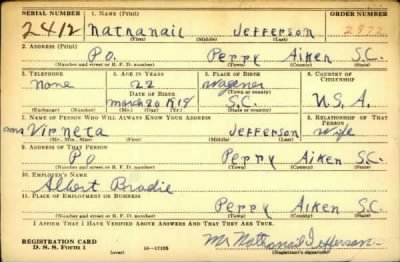 SERIAL NUMBER 1. NAME (Print) ORDER NUMBER
2412 Nathanail Jefferson 2972
(First) (Middle) (Last)
2. ADDRESS (Print)
P.O. Perry Aiken S.C.
(Number and street or R. F. D. number) (Town) (County) (State)
3. TELEPHONE 4. AGE IN YEARS 5. PLACE OF BIRTH 6. COUNTRY OF CITIZENSHIP
None 22 Wagener
DATE OF BIRTH (Town or county)
March 20 1918 S.C. U.S.A.
(Exchange) (Number) (Mo.) (Day) (Yr.) (State or country)
7. NAME OF PERSON WHO WILL ALWAYS KNOW YOUR ADDRESS 8. RELATIONSHIP OF THAT PERSON
Mrs Virneta Jefferson Wife
(Mr., Mrs., Miss) (First) (Middle) (Last)
9. ADDRESS OF THAT PERSON
P.O Perry Aiken S.C.
(Number and street or R. F. D. number) (Town) (County) (State)
10. EMPLOYER'S NAME
Albert Brodie
11. PLACE OF EMPLOYMENT OR BUSINESS
Perry Aiken S.C.
(Number and street or R. F. D. number) (Town) (County) (State)
I AFFIRM THAT I HAVE VERIFIED ABOVE ANSWERS AND THAT THEY ARE TRUE.
REGISTRATION CARD
D. S. S. Form 1 (over) 16-17105 Mr Nathanail Jefferson
(Registrant's signature)